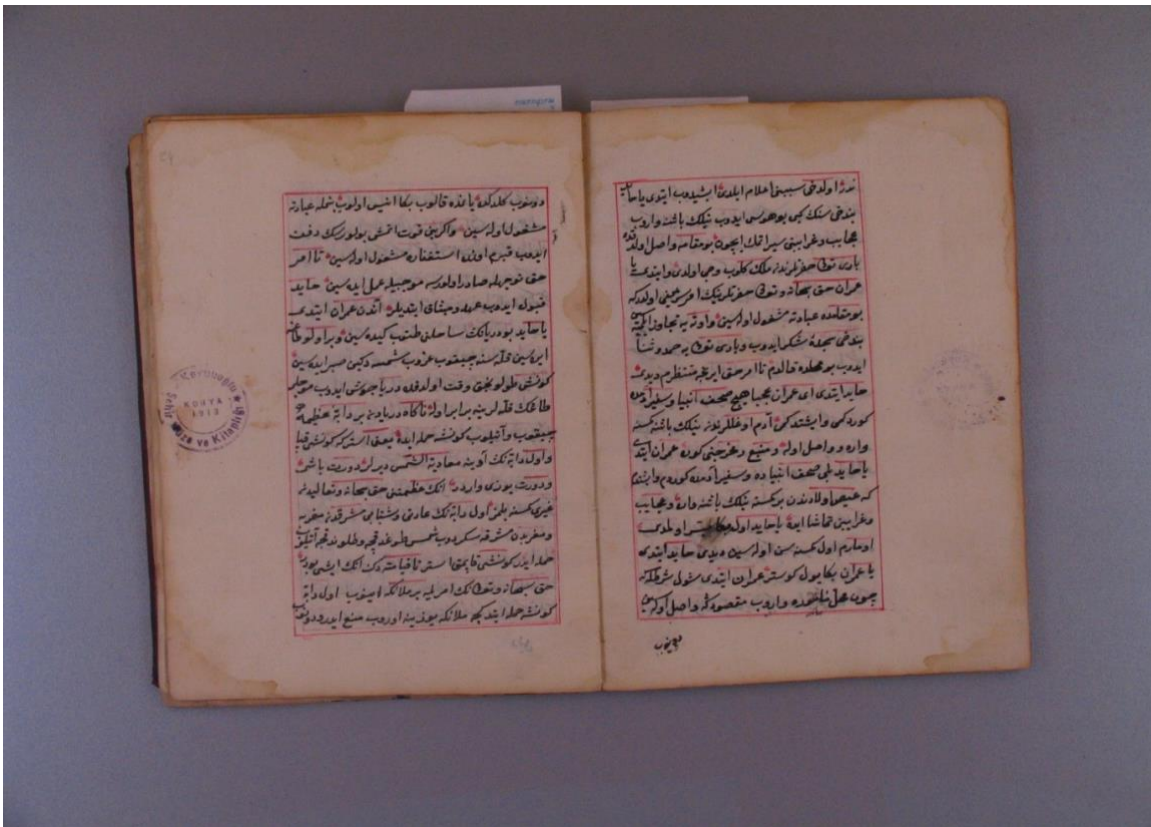 ندر اولدخی سببنی اعلام ایلدی ایشیدوب ایتدی یا حاید
بندخی سنك كبی بو هوسی ایدوب نیلك باشنه واروب
عجایب و غرایبنی سیر اتمك ایچون بو مقامه واصل اولدقده
باری تعالی حضرتلرندن ملك كلوب وحی اولدی و ایتدی یا
عمران حق سبحانه وتعالی حضرتلرینك امر شریفی اولدركه
بو مقامده عبادته مشغول اوله سین و اوته یه تجاوز ایتمیه سین
بندخی سجدهٔ شكر ایدوب و باری تعالی یه حمد و ثنا
ایدوب بو محلده قالدم تا امر حق ایریجه منتظرم دیدی
حاید ایتدی ای عمران عجبا هیچ صحف انبیا و سفر آدمده
كوردكمی و ایشتدكمی آدم اوغللرندن نیلك باشنه كسنه
وارە و واصل اوله و منبع و مخرجنی كوره عمران ایتدی
یا حاید بلی صحف انبیاده و سفر آدمده كوردم و ایتدی
كه عیصو اولادندن بر كسنه نیلك باشنه واره و عجایب
و غرایبنی تماشا ایده یا حاید اوله میسر اولدی
اومارم اول كسنه سن اوله سین دیدی حاید ایتدی
یا عمران بكا یول كوستر عمران ایتدی شول شرطله كه
چون واروب مقصودكه واصل اوله سین
دونوب
دونوب كلدكده یانمده قالوب بكا انیس اولوب بنمله عبادته
مشغول اوله سین و اكر بنی فوت اتمش بولورسك دفن
ایدوب قبرم اوننده استغفاره مشغول اوله سین تا امر
حق نوجهله صادر اولورسه موجبیله عمل ایده سین حاید
قبول ایدوب عهد و میثاق ایتدیلر اندن عمران ایتدی
یا حاید بو دریانك ساحلن طتوب كیده سین و بر اولو طاغه
ایره سین قله سنه چیقوب غروب شمسه دكین صبر ایده سین
كونش طولونجق وقت اولدقده دریا جوش ایدوب موجلر
طاغك قله لرینه برابر اوله ناكاه دریادن بر دابهٔ عظیمه
چیقوب و آتیلوب كونشه حمله ایده یوتمق استر كه كونشی قپا
و اول دابه نك آدینه معادیة الشمس دیرلر دورت باشی
و دورت یوزی واردر انك عظمتنی حق سبحانه وتعالیدن
غیری كسنه بلمز اول دابه نك عادتی و شتابی مشرقدن مغربه
و مغربدن مشرقه سكردوب شمس طوغدقجه و طولوندقجه آتیلوب
حمله ایدر كونشی قاپمق استر تا قیامته دك انك ایشی بودر
حق سبحانه وتعالی نك امریله بر ملائكه اینوب اول دابه
كونشه حمله ایتدكجه ملائكه یوزینه اوروب منع ایدر دونوب
Konya
Şehir Müze ve Kitaplığı